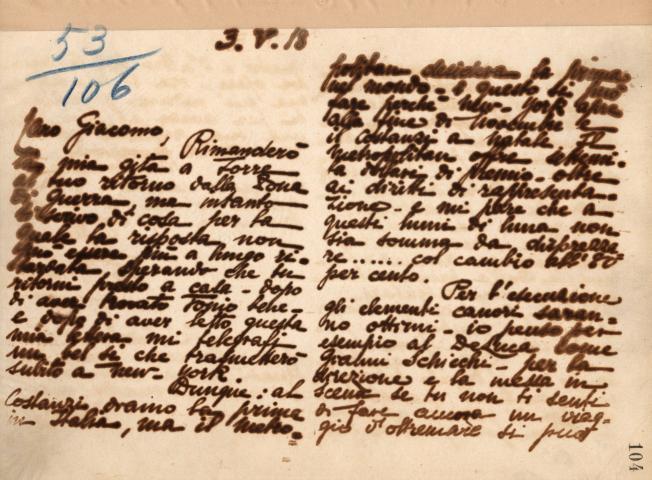 53
106
3. V. 18
Caro Giacomo,
Rimanderò
la mia gita a Torre
al tuo ritorno dalla zona
di guerra, ma intanto
ti scrivo di cosa per la
quale la risposta non
può essere più a lungo ri-
tardata sperando che tu
ritorni presto a casa - dopo
di aver trovato Tonio bene -
e dopo di aver letto questa
mia lettera mi telegrafi
un bel sì che trasmetterò
subito a New-York.
Dunque: al
Costanzi diamo la prima
in Italia, ma il Metro-
politan desidera la prima
nel mondo - e questo si può
fare perchè New-York apre
alla fine di Novembre e
il Costanzi a Natale. Il
Metropolitan offre settemi-
la dollari di premio - oltre
ai diritti di rappresenta-
zione - e mi pare che a
questi lumi di luna non
sia somma da disprezza
re....... col cambio all'80
per cento.
Per l'esecuzione
gli elementi canori saran-
no ottimi - io penso per
esempio al DeLuca come
Gianni Schicchi - per la
direzione e la messa in
scena se tu non ti senti
di fare ancora un viag-
gio d'oltremare si può
104